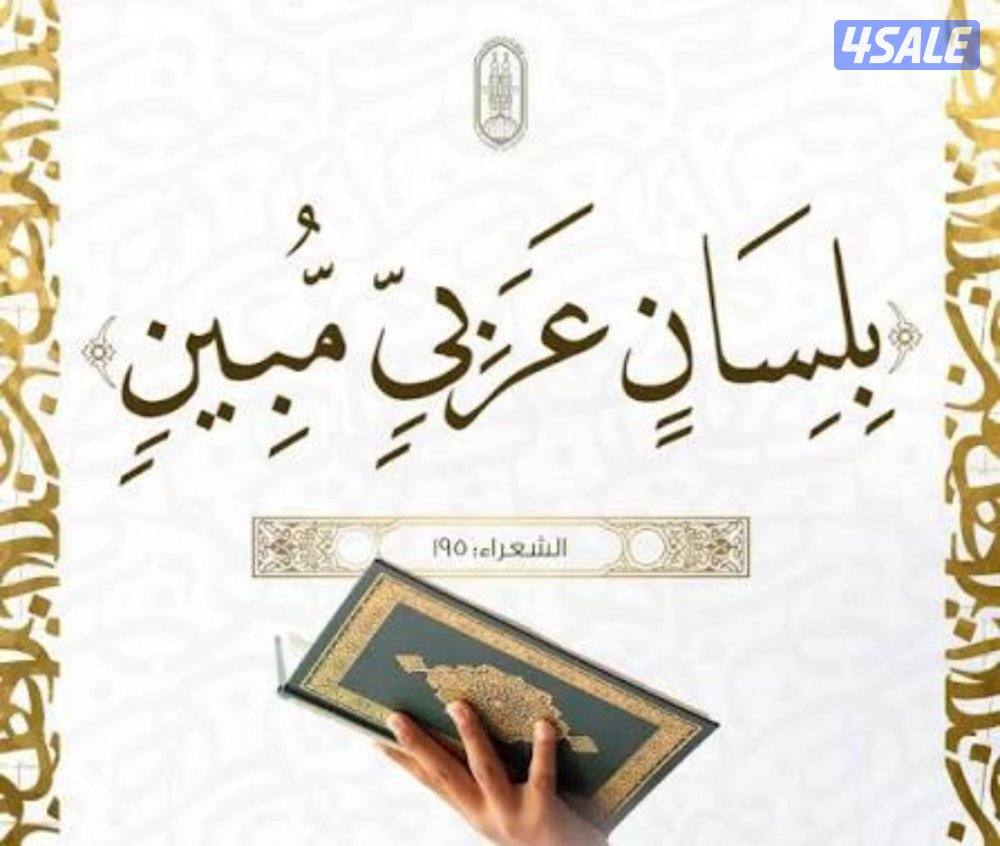 4SALE
﴿بِلِسَانٍ عَرَبِيٍّ مُّبِينٍ﴾
الشعراء: ١٩٥